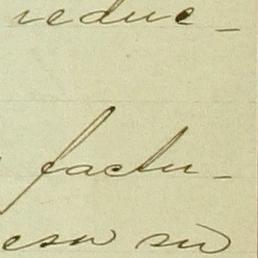 reduc-
factu-
esa su